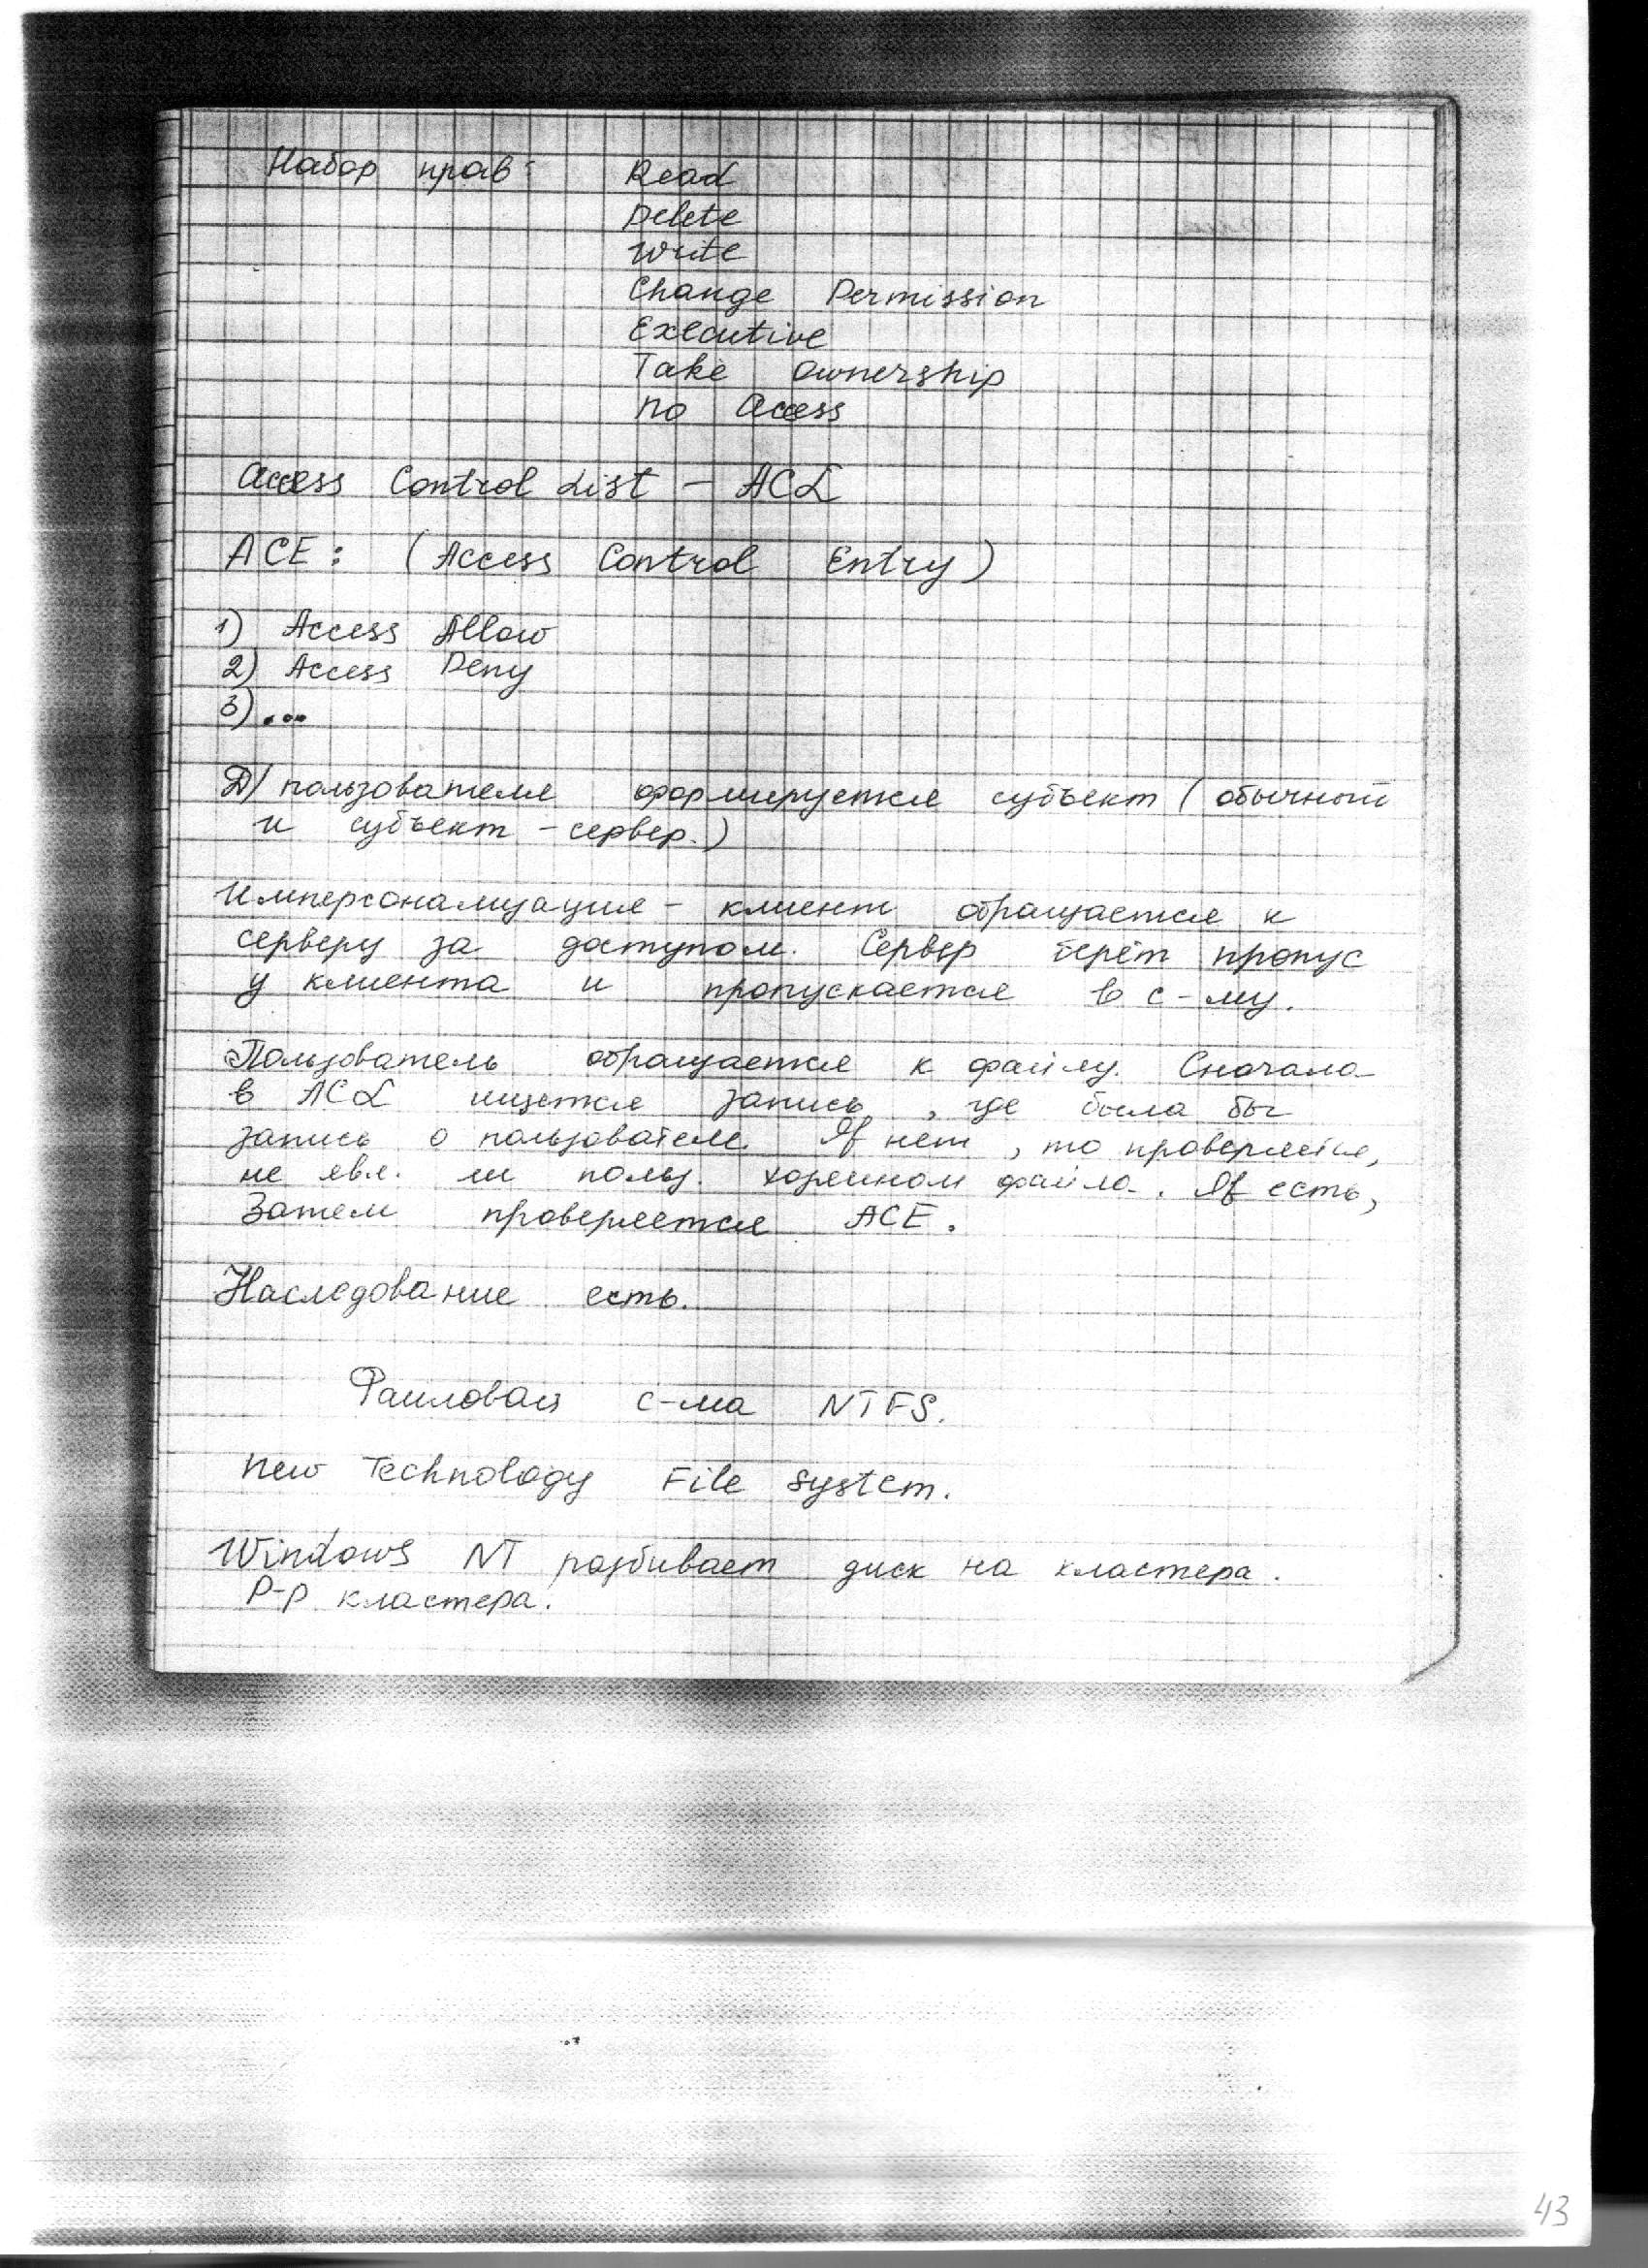 Набор прав: Read
Delete
Write
Change Permission
Executive
Take ownership
no access
Access Control List – ACL
ACE: (Access Control Entry)
1) Access Allow
2) Access Deny
3) ...
Д/ пользователя формируется субъект (обычный
и субъект – сервер.)
Имперсонализация – клиент обращается к
серверу за доступом. Сервер берёт пропус
у клиента и пропускается в с-му.
Пользователь обращается к файлу. Сначала
в ACL ищется запись, где была бы
запись о пользователе. If нет, то проверяется,
не явл. ли польз. хозяином файла. If есть,
Затем проверяется ACE.
Наследование есть.
Файловая с-ма NTFS.
New Technology File System.
Windows NT разбивает диск на кластера.
Р-р кластера.
43